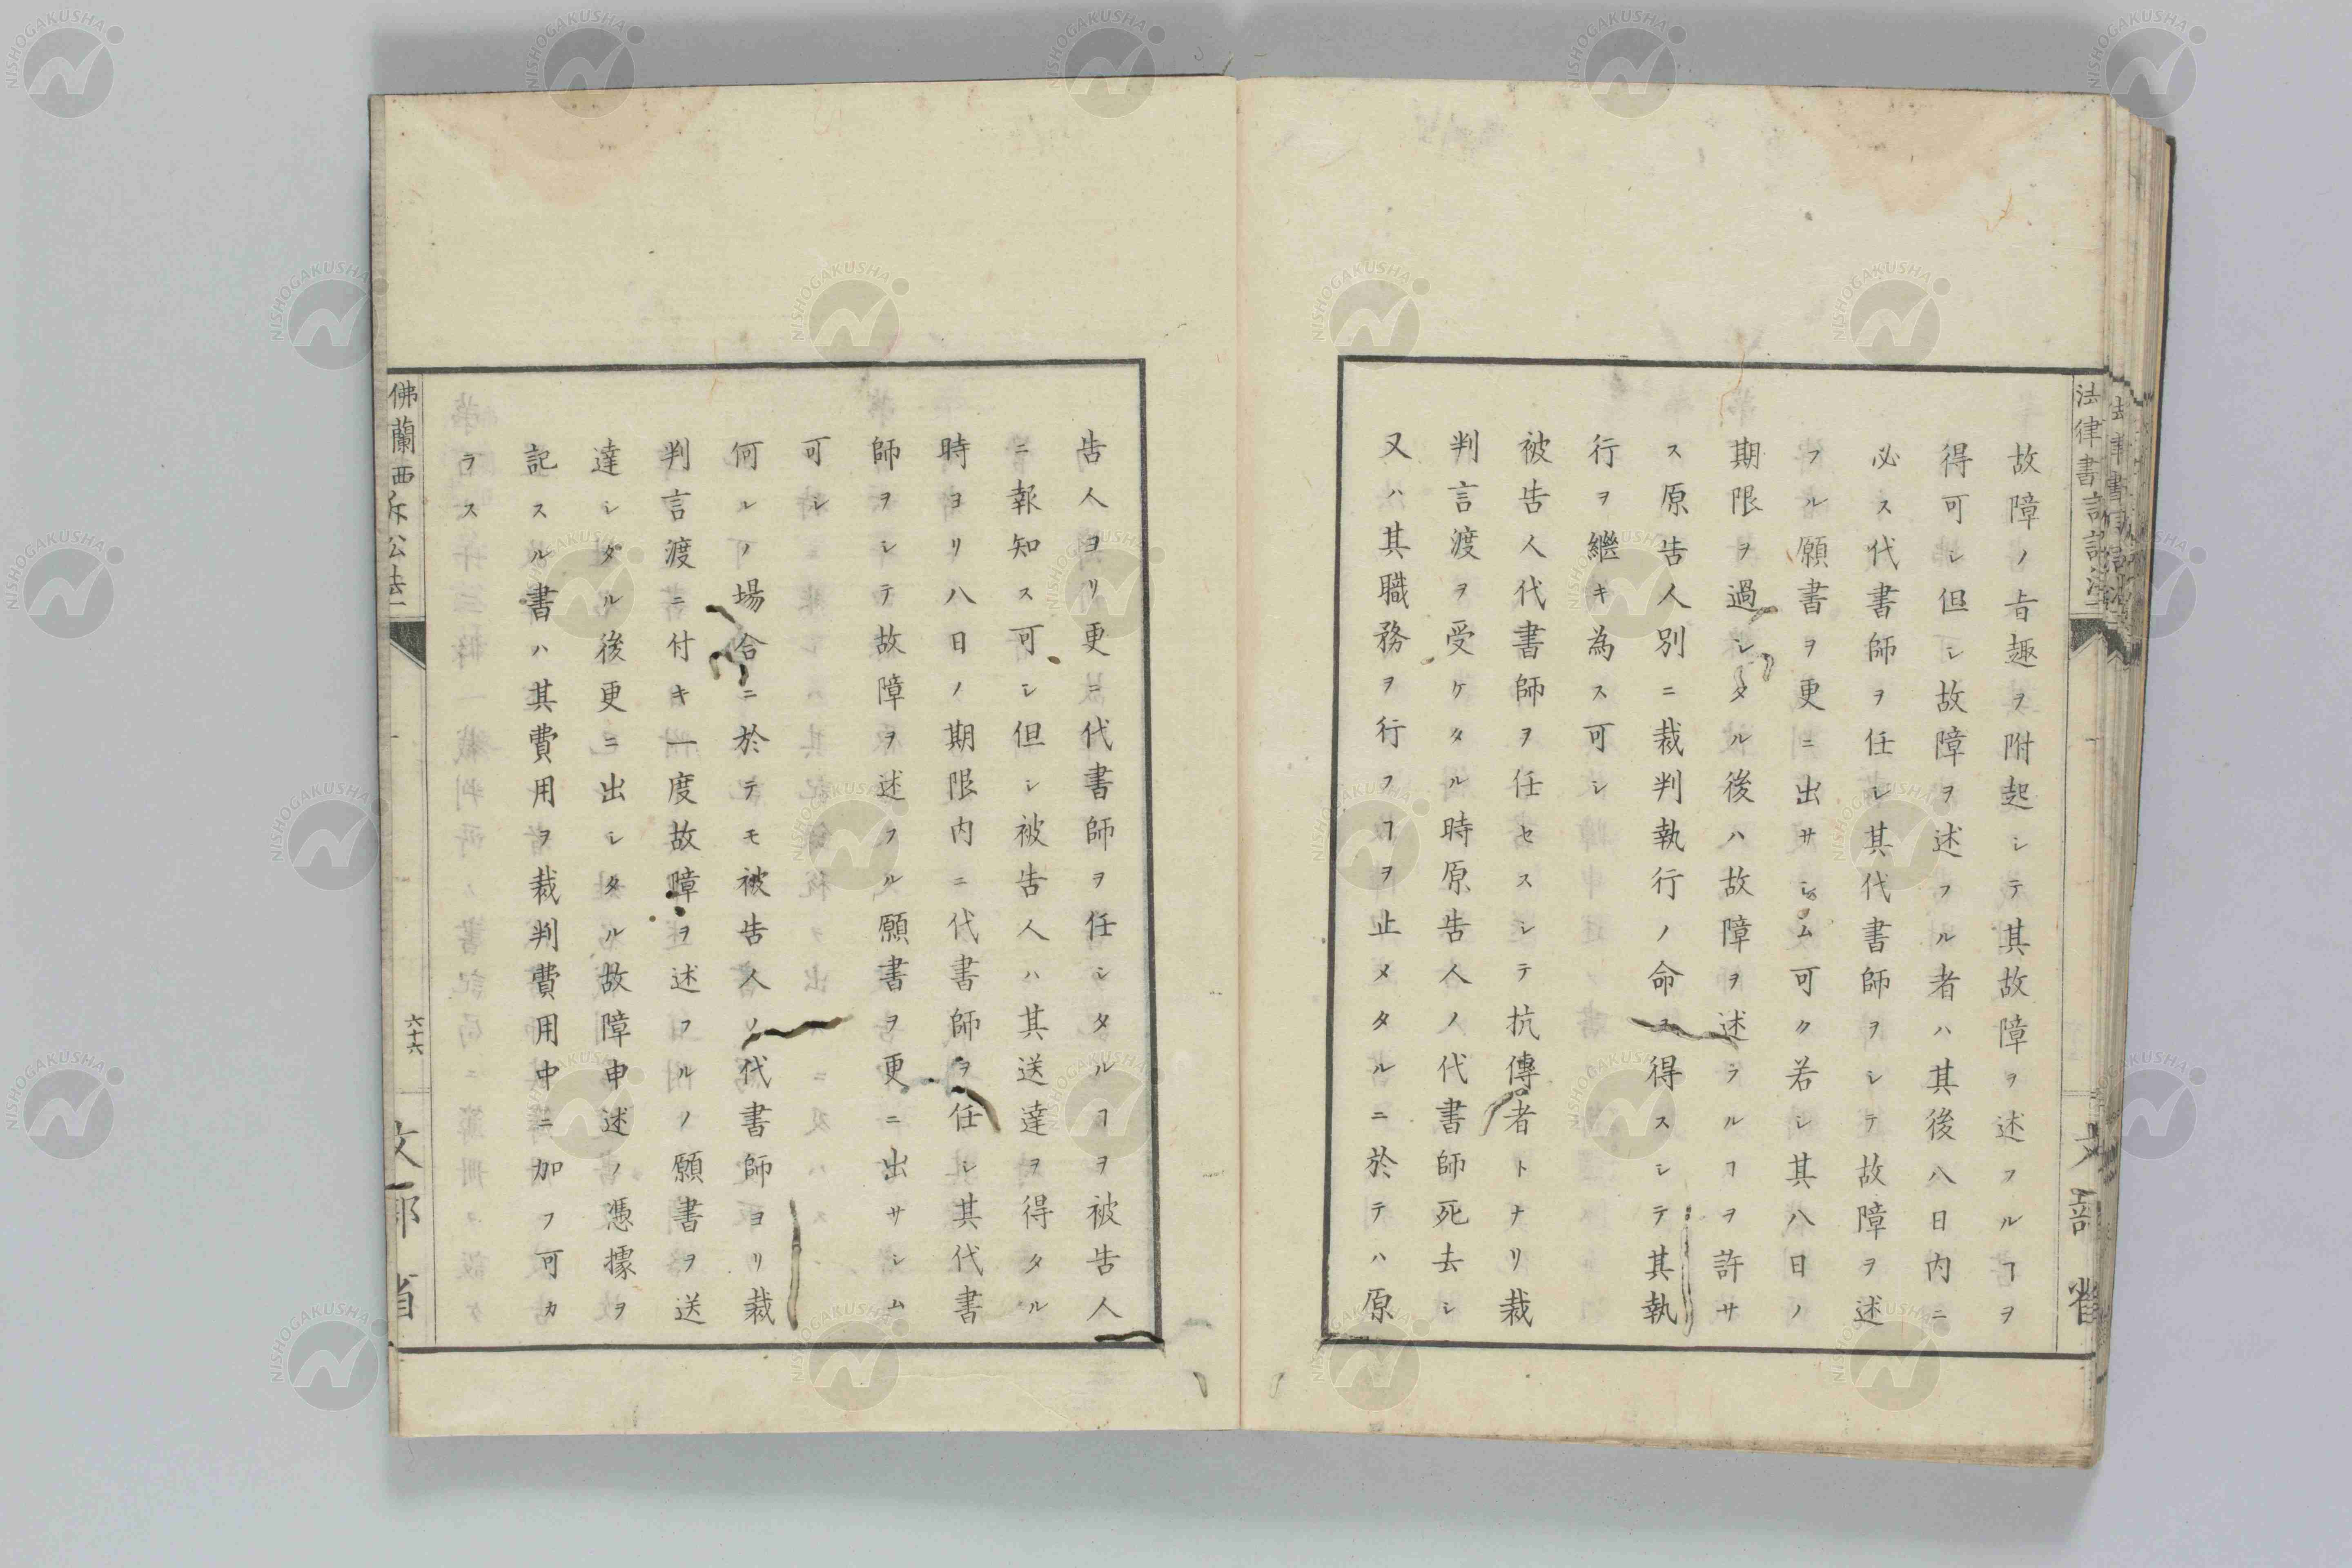 故障ノ㫖趣ヲ附起シテ其故障ヲ述フルヿヲ
得可シ但シ故障ヲ述フル者ハ其後八日内ニ
必ス代書師ヲ任シ其代書師ヲシテ故障ヲ述
フル願書ヲ更ニ出サシム可ク若シ其八日ノ
期限ヲ過シタル後ハ故障ヲ述ラルヿヲ許サ
ス原告人別ニ裁判執行ノ命ヲ得スシテ其執
行ヲ繼キ為ス可シ
被告人代書師ヲ任セスシテ抗傳者トナリ裁
判言渡ヲ受ケタル時原告人ノ代書師死去シ
又ハ其職務ヲ行フヿヲ止メタルニ於テハ原
告人ヨリ更ニ代書師ヲ任シタルヿヲ被告人
ニ報知ス可シ但シ被告人ハ其送達ヲ得タル
時ヨリ八日ノ期限内ニ代書師ヲ任シ其代書
師ヲシテ故障ヲ述フル願書ヲ更ニ出サシム
可シ
何レノ場合ニ於テモ被告人ノ代書師ヨリ裁
判言渡ニ付キ一度故障ヲ述フルノ願書ヲ送
達シタル後更ニ出シタル故障申述ノ憑據ヲ
記スル書ハ其費用ヲ裁判費用中ニ加フ可カ
ラス
佛蘭西訴訟法
六十六
文部省
NISHOGAKUSHA